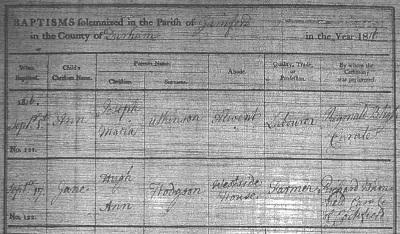 BAPTISMS solemnized in the Parish of Gainford
in the County of Durham in the Year 1816
When Baptized. Child's Christian Name. Parents Name Christian. Surname. Abode. Quality, Trade, or Profession. By whom the Ceremony was performed.
1816.
Sept. 1st Ann Joseph Maria Atkinson Alwent Labourer Curate
No. 121.
Sept. 17. Jane Hugh Ann Hodgson House Farmer Richard Curate of
No. 122.